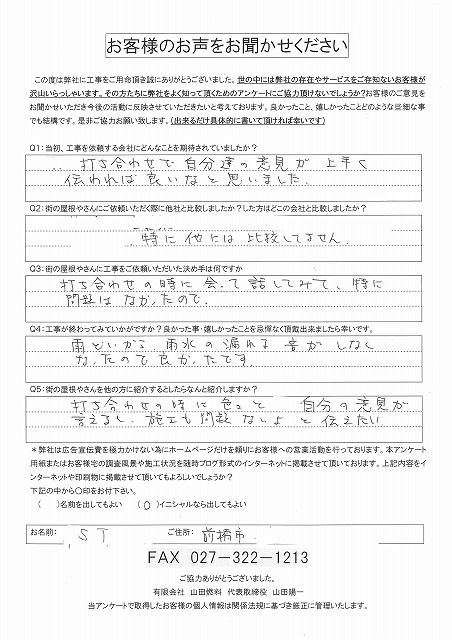 お客様のお声をお聞かせください
この度は弊社に工事をご用命頂き誠にありがとうございました。世の中には弊社の存在やサービスをご存知ないお客様が
沢山いらっしゃいます。その方たちに弊社をよく知って頂くためのアンケートにご協力頂けないでしょうか?お客様のご意見を
お聞かせいただき今後の活動に反映させていただきたいと考えております。良かったこと、嬉しかったことどのような些細な事
でも結構です。是非ご協力お願い致します。(出来るだけ具体的に書いて頂ければ幸いです)
Q1:当初、工事を依頼する会社にどんなことを期待されていましたか?
打ち合わせで自分達の意見が上手く
伝われば良いなと思いました。
Q2:街の屋根やさんにご依頼いただく際に他社と比較しましたか?した方はどこの会社と比較しましたか?
特に他には比較してません。
Q3:街の屋根やさんに工事をご依頼いただいた決め手は何ですか
打ち合わせの時に会って話してみて、特に
問題はなかったので。
Q4:工事が終わってみていかがですか?良かった事・嬉しかったことを忌憚なく頂戴出来ましたら幸いです。
雨どいから、雨水の漏れる音がしなく
なったので良かったです。
Q5:街の屋根やさんを他の方に紹介するとしたらなんと紹介しますか?
打ち合わせの時に色々と 自分の意見が
言えるし、施工も問題ないよと伝えたい
*弊社は広告宣伝費を極力かけない為にホームページだけを頼りにお客様への営業活動を行っております。本アンケート
用紙またはお客様宅の調査風景や施工状況を随時ブログ形式のインターネットに掲載させて頂いております。上記内容をイ
ンターネットや印刷物に掲載させて頂いてもよろしいでしょうか?
下記の中から〇印をお付下さい。
( )名前を出してもよい (〇)イニシャルなら出してもよい
お名前: ST ご住所: 前橋市
FAX 027-322-1213
ご協力ありがとうございました。
有限会社 山田燃料 代表取締役 山田陽一
当アンケートで取得したお客様の個人情報は関係法規に基づき厳正に管理いたします。